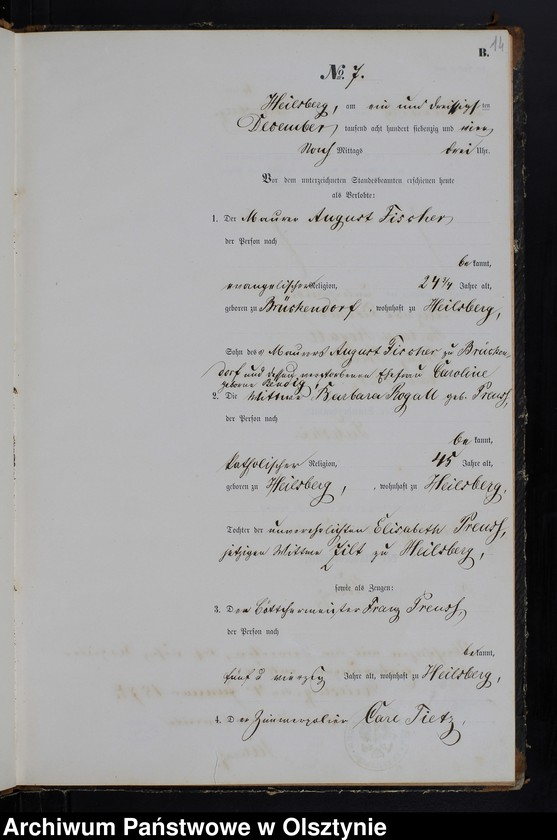 14
B.
No. 7.
Heilsberg, am ein und dreißigsten
December tausend acht hundert siebenzig und vier
Nach Mittags drei Uhr.
Vor dem unterzeichneten Standesbeamten erschienen heute
als Verlobte:
1. Der Maurer August Fischer
der Person nach
be kannt,
evangelischer Religion, 24 ¼ Jahre alt,
geboren zu Brückendorf, wohnhaft zu Heilsberg,
Sohn des Maurers August Fischer zu Brücken
dorf und dessen verstorbenen Ehefrau Caroline
geborne
2. Die Wittwe Barbara Rogall geb. Preusch,
der Person nach
be kannt,
katholischer Religion, 45 Jahre alt,
geboren zu Heilsberg, wohnhaft zu Heilsberg,
Tochter der unverehelichten Elisabeth Preusch,
jetzigen Wittwe zu Heilsberg,
sowie als Zeugen:
3. Der Böttchermeister Franz Preusch,
der Person nach
be kannt,
fünf u vierzig Jahre alt, wohnhaft zu Heilsberg,
4. Der Zimmerpolier Carl Tietz,
Archiwum Państwowe w Olsztynie